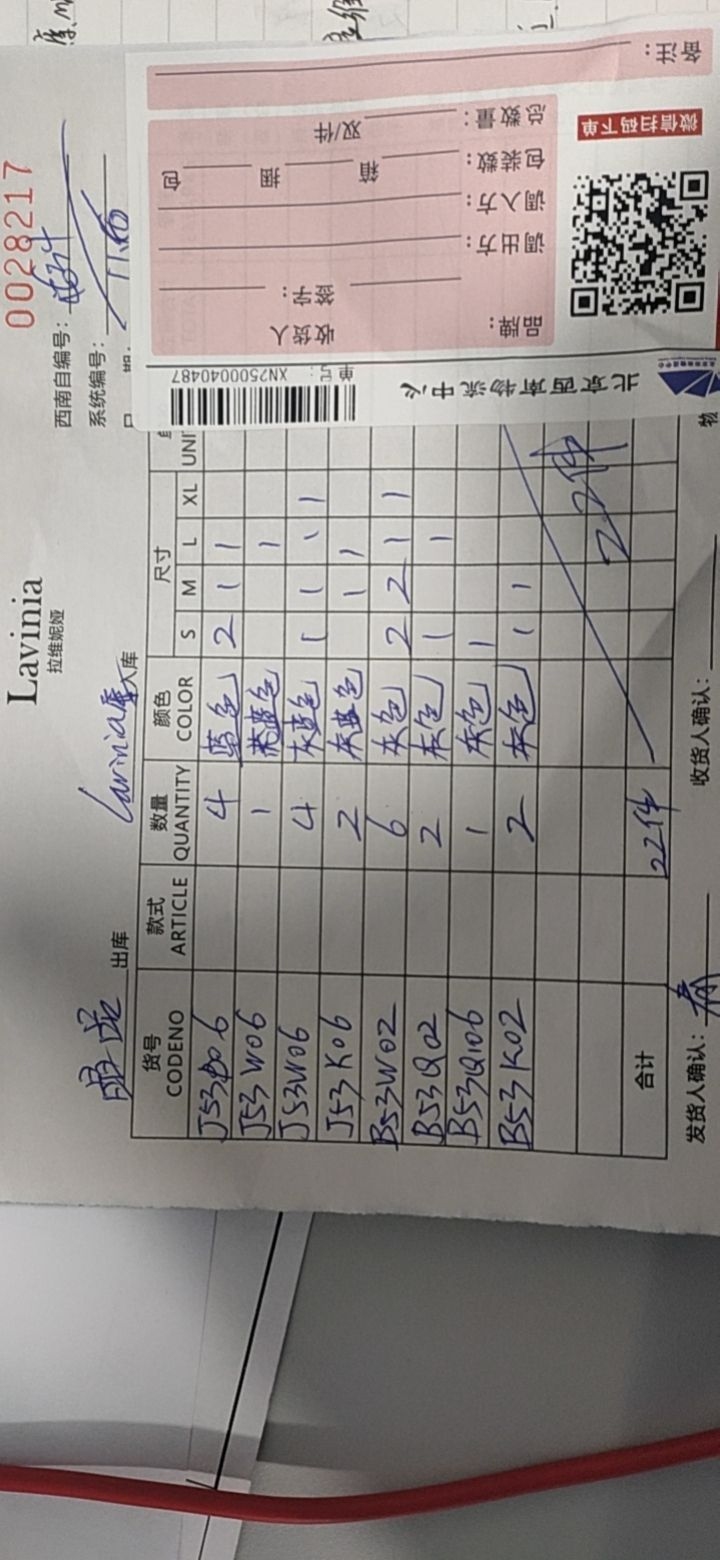 Lavinia
拉维妮娅
0028217
西南自编号：
系统编号：
出库 Lavinia库 入库
货号 款式 数量 颜色 尺寸
CODENO ARTICLE QUANTITY COLOR S M L XL UNI
J53B06 4 蓝色 2 1 1
J53W06 1 米蓝色 1
J53W06 4 灰蓝色 1 1 1 1
J53K06 2 灰蓝色 1 1
B53W02 6 灰色 2 2 1 1
B53Q02 2 灰色 1 1
B53Q106 1 灰色 1
B53K02 2 灰色 1 1
22件
合计 22件
发货人确认： 收货人确认：
北京西南物流中心
单号：XN2500040487
品牌： 收货人签字：
调出方：
调入方：
包装数： 箱 捆 包
总数量： 双/件
备注：
微信扫码下单